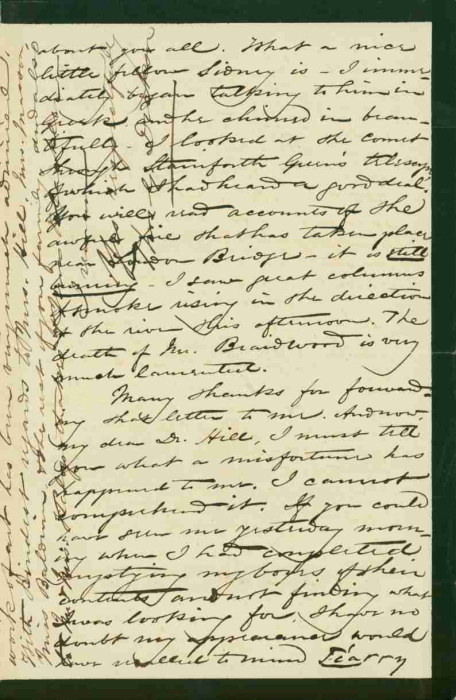 about you all. What a nice
little fellow Sidney is – I imme-
diately began talking to him in
Greek and he chimed in beau-
tifully. I looked at the Comet
through Stamforth Green's telescope
of which I had heard a good deal.
You will read accounts of the
awful fire that has taken place
near London Bridge – it is still
burning – I saw great columns
of smoke rising in the direction
of the river this afternoon. The
death of Mr. Braidwood is very
much lamented.
Many thanks for forward-
ing that letter to me. And now,
my dear Dr. Hill, I must tell
you what a misfortune has
happened to me. I cannot
comprehend it. If you could
have seen me yesterday morn-
ing when I had completed
emptying my boxes of their
contents, and not finding what
I was looking for, I have no
doubt my appearance would
have recalled to mind
work of art has been very much admired.
With kindest regards to Mrs. Hill, Mrs.
Miss